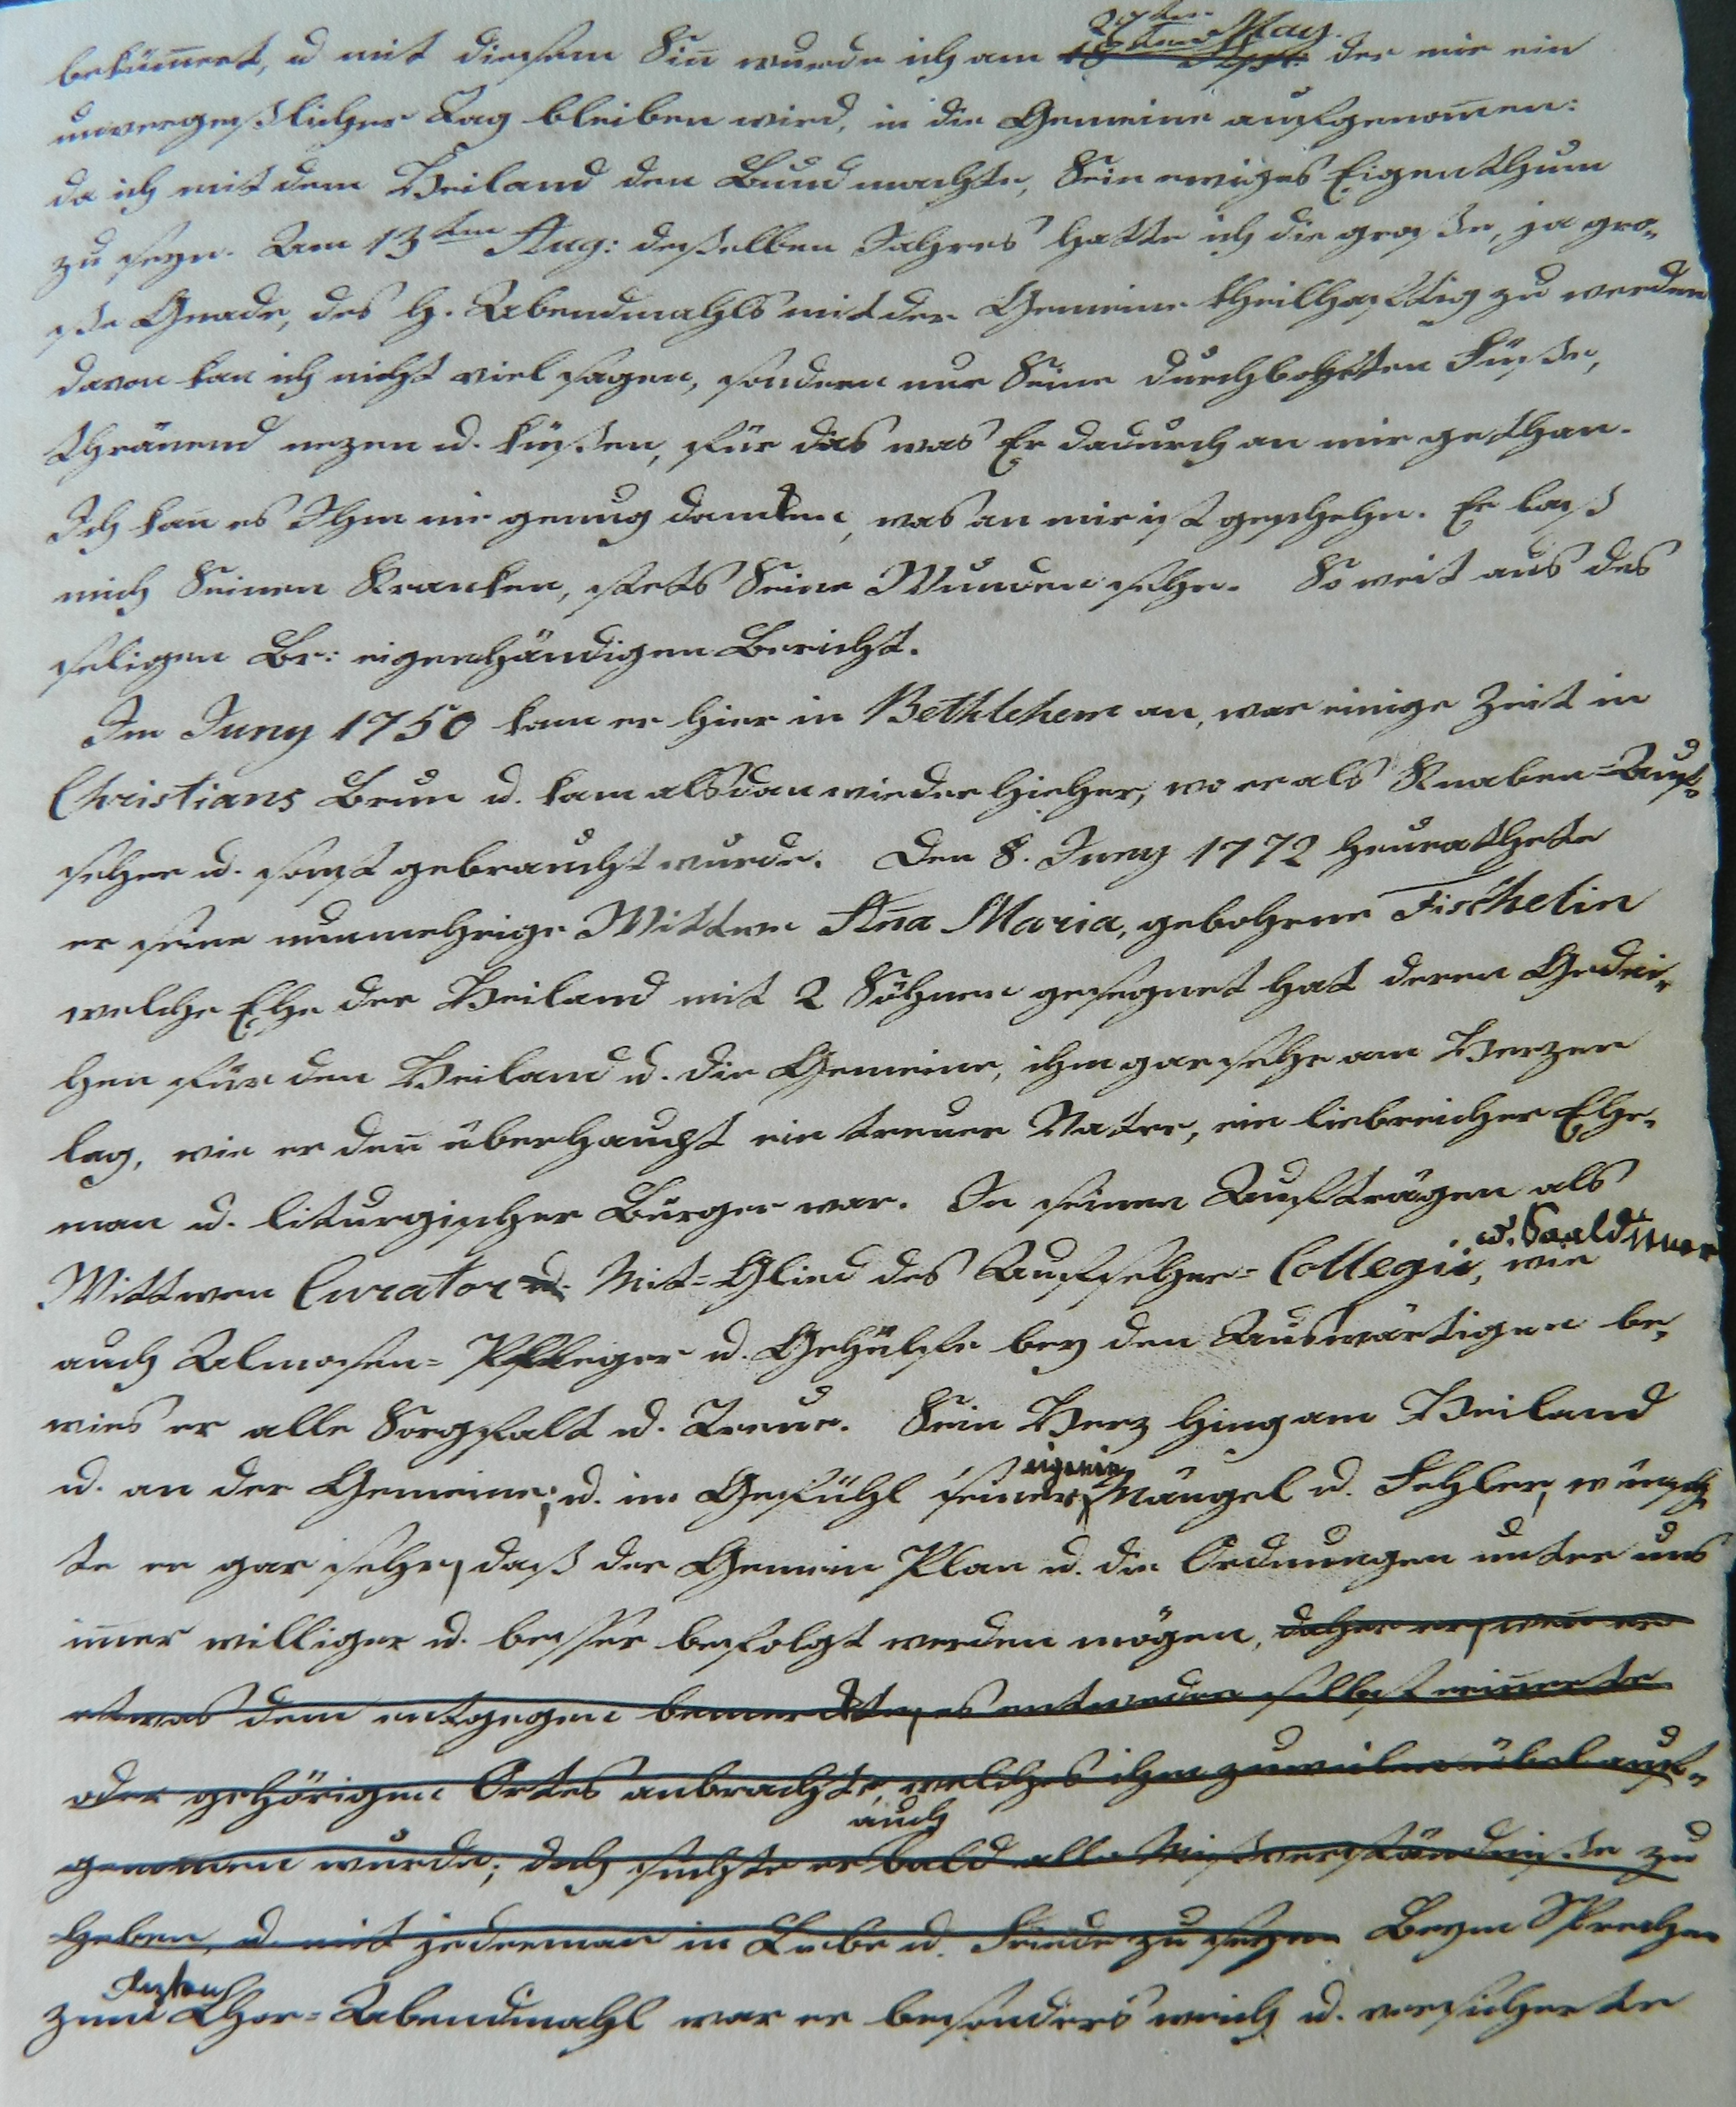 bekümert, u mit diesem Sin wurde ich am 27ten May. der mir ein
unvergeßlicher Tag bleiben wird, in die Gemeine aufgenomen:
da ich mit dem Heiland den Bund machte, Sein ewiges Eigenthum
zu seyn. Am 13ten Aug: deßelben Jahres hatte ich die große, ja gro-
ße Gnade, des H. Abendmahls mit der Gemeine theilhafftig zu werden
davon kan ich nicht viel sagen, sondern nur Seine durchbohrten Füße,
thränend nezen u. küßen, für das was Er dadurch an mir gethan.
Ich kan es Ihm nie genug danken, was an mir ist geschehn. Er laß
mich Seinen Kranken, stets Seine Wunden sehn. So weit aus des
seligen Br: eigenhändigen Bericht.
Im Juny 1750 kam er hier in Bethlehem an, war einige Zeit in
Christians Brun u. kam alsdan wieder hieher, wo er als Knaben=Auf-
seher u. sonst gebraucht wurde. Den 8. Juny 1772 heurathete
er seine nunmehrige Wittwe Ana Maria, gebohrene Fischelin
welche Ehe der Heiland mit 2 Söhnen gesegnet hat deren Gedei-
hen für den Heiland u. die Gemeine, ihm gar sehr am Herzen
lag, wie er den überhaupt ein treuer Vater, ein liebreicher Ehe-
man u. liturgischer Bürger war. In seinen Aufträgen als
u. Saaldiener
Wittwen Curator u. Mit=Glied des Aufseher=Collegii, wie
auch Almosen=Pfleger u. Gehülfe bey den Auswärtigen be-
wies er alle Sorgfalt u. Treue. Sein Herz hing am Heiland
eigenen
u. an der Gemeine; u. im Gefühl seiner Mängel u. Fehler, wünsch
te er gar sehr, daß der Gemein Plan u. die Ordnungen unter uns
imer williger u. besser befolgt werden mögen, daher er, wen er
etwas dem entgegen bemerckte, es entweder selbst erinerte
oder gehörigen Ortes anbrachte, welches ihm zuweilen übel auf-
auch
genomen wurde; doch suchte er bald alle Mißverständniße zu
heben, u. mit jederman in Liebe u. Friede zu seyn. Beym Sprechen
zum Chor=Abendmahl war er besonders weich u. versicherte